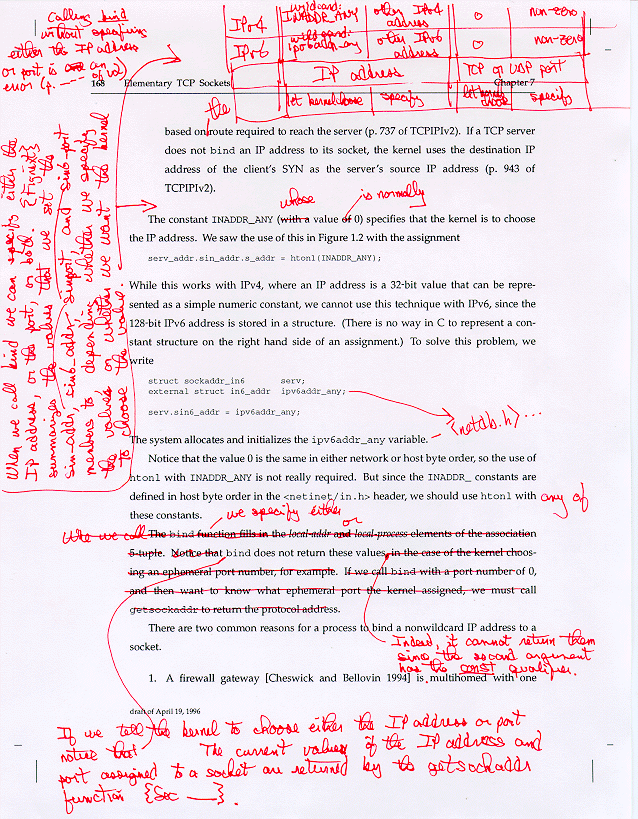 Calling bind
without specifying
either the IP address
or port is an
error (p. — of v2)
IPv4
wildcard:
INADDR_ANY
other IPv4
address
0
non-zero
IPv6
wildcard:
ip6addr_any
other IPv6
address
0
non-zero
IP address
TCP or UDP port
let kernel choose
specify
let kernel
choose
specify
168 Elementary TCP Sockets Chapter 7
the
based on route required to reach the server (p. 737 of TCPIPIv2). If a TCP server
does not bind an IP address to its socket, the kernel uses the destination IP
address of the client's SYN as the server's source IP address (p. 943 of
TCPIPIv2).
whose is normally
The constant INADDR_ANY (with a value of 0) specifies that the kernel is to choose
the IP address. We saw the use of this in Figure 1.2 with the assignment
serv_addr.sin_addr.s_addr = htonl(INADDR_ANY);
While this works with IPv4, where an IP address is a 32-bit value that can be repre-
sented as a simple numeric constant, we cannot use this technique with IPv6, since the
128-bit IPv6 address is stored in a structure. (There is no way in C to represent a con-
stant structure on the right hand side of an assignment.) To solve this problem, we
write
struct sockaddr_in6 serv;
external struct in6_addr ipv6addr_any;
serv.sin6_addr = ipv6addr_any;
<netdb.h> ...
The system allocates and initializes the ipv6addr_any variable.
Notice that the value 0 is the same in either network or host byte order, so the use of
htonl with INADDR_ANY is not really required. But since the INADDR_ constants are
defined in host byte order in the <netinet/in.h> header, we should use htonl with any of
these constants.
we specify either
or
we call The bind function fills in the local-addr and local-process elements of the association
5-tuple. Notice that bind does not return these values, in the case of the kernel choos-
ing an ephemeral port number, for example. If we call bind with a port number of 0,
and then want to know what ephemeral port the kernel assigned, we must call
getsockaddr to return the protocol address.
There are two common reasons for a process to bind a nonwildcard IP address to a
socket.
Indeed, it cannot return them
since the second argument
has the const qualifier.
1. A firewall gateway [Cheswick and Bellovin 1994] is multihomed with one
draft of April 19, 1996
If we tell the kernel to choose either the IP address or port
notice that
The current values of the IP address and
port assigned to a socket are returned by the getsockaddr
function {Sec —}.
When we call bind we can specify either the
IP address, or the port, or both.
summarizes the values that we set the
sin_addr, sin6_addr, sin_port and sin6_port
members to, depending whether we specify
the values or whether we want the kernel
to choose the value.